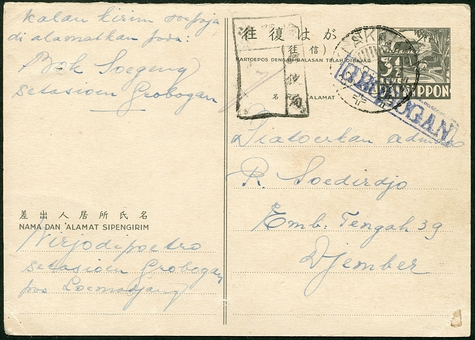 kalau kirim
di alamatkan pada:
Bok Soegeng
setasioen Grobogan
差出人居所氏名
NAMA DAN ALAMAT SIPENGIRIM
Wirjodipoetro
setasioen Grobogan
pos Loemadjang
往復はがき
(往信)
KARTOEPOS DENGAN BALASAN TELAH DIBAJAR
名 ALAMAT
3½
NIPPON
GROBOGAN
R. Soedirdjo
Emb. Tengah 39
Djember